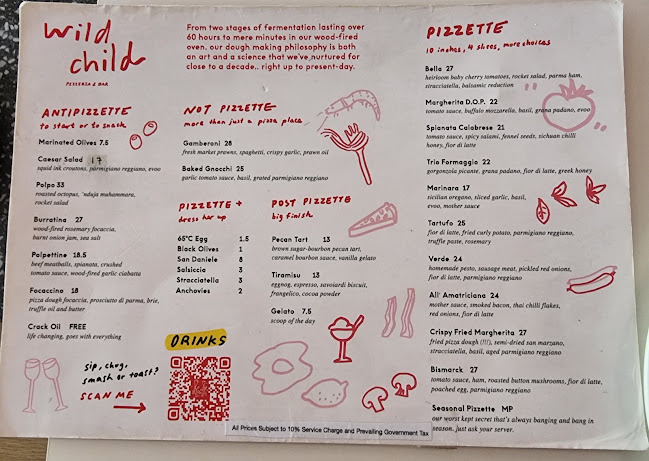 wild
child
PIZZERIA & BAR
From two stages of fermentation lasting over
60 hours to mere minutes in our wood-fired
oven, our dough making philosophy is both
an art and a science that we've nurtured for
close to a decade.. right up to present-day.
ANTIPIZZETTE
to start or to snack
Marinated Olives 7.5
Caesar Salad 17
squid ink croutons, parmigiano reggiano, evoo
Polpo 33
roasted octopus, 'nduja muhammara,
rocket salad
Burratina 27
wild-fired rosemary focaccia,
burnt onion jam, sea salt
Polpettine 18.5
beef meatballs, spianata, crushed
tomato sauce, wood-fired garlic ciabatta
Focaccino 18
pizza dough focaccia, prosciutto di parma, brie,
truffle oil and butter
Crack Oil FREE
life changing, goes with everything
sip, chug,
smash or toast?
SCAN ME
NOT PIZZETTE
more than just a pizza place
Gamberoni 28
fresh market prawns, spaghetti, crispy garlic, prawn oil
Baked Gnocchi 25
garlic tomato sauce, basil, grated parmigiano reggiano
PIZZETTE +
dress her up
65°C Egg 1.5
Black Olives 1
San Daniele 8
Salsiccia 3
Stracciatella 3
Anchovies 2
POST PIZZETTE
big finish
Pecan Tart 13
brown sugar-bourbon pecan tart,
caramel bourbon sauce, vanilla gelato
Tiramisu 13
eggnog, espresso, savoiardi biscuit,
frangelico, cocoa powder
Gelato 7.5
scoop of the day
DRINKS
PIZZETTE
10 inches, 4 slices, more choices
Bella 27
heirloom baby cherry tomatoes, rocket salad, parma ham,
stracciatella, balsamic reduction
Margherita D.O.P. 22
tomato sauce, buffalo mozzarella, basil, grana padano, evoo
Spianata Calabrese 21
tomato sauce, spicy salami, fennel seeds, sichuan chilli
honey, fior di latte
Trio Formaggio 22
gorgonzola picante, grana padano, fior di latte, greek honey
Marinara 17
sicilian oregano, sliced garlic, basil,
evoo, mother sauce
Tartufo 25
fior di latte, fried curly potato, parmigiano reggiano,
truffle paste, rosemary
Verde 24
homemade pesto, sausage meat, pickled red onions,
fior di latte, parmigiano reggiano
All' Amatriciana 24
mother sauce, smoked bacon, thai chilli flakes,
red onions, fior di latte
Crispy Fried Margherita 27
fried pizza dough (!!!), semi-dried san marzano,
stracciatella, basil, aged parmigiano reggiano
Bismarck 27
tomato sauce, ham, roasted button mushrooms, fior di latte,
poached egg, parmigiano reggiano
Seasonal Pizzette MP
our worst kept secret that's always banging and bang in
season. just ask your server.
All Prices Subject to 10% Service Charge and Prevailing Government Tax